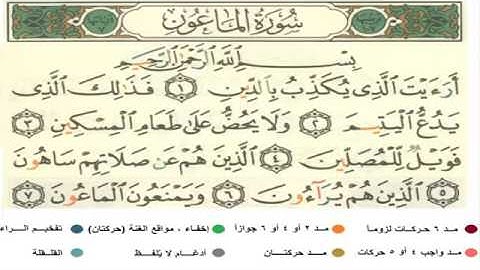 سُورَةُ المَاعُونِ
بِسْمِ اللَّهِ الرَّحْمَٰنِ الرَّحِيمِ
أَرَءَيْتَ الَّذِي يُكَذِّبُ بِالدِّينِ ١ فَذَٰلِكَ الَّذِي
يَدُعُّ الْيَتِيمَ ٢ وَلَا يَحُضُّ عَلَىٰ طَعَامِ الْمِسْكِينِ ٣
فَوَيْلٌ لِّلْمُصَلِّينَ ٤ الَّذِينَ هُمْ عَن صَلَاتِهِمْ سَاهُونَ
٥ الَّذِينَ هُمْ يُرَاءُونَ ٦ وَيَمْنَعُونَ الْمَاعُونَ ٧
مـد ٦ حركات لزوما مـد ٢ أو ٤ أو ٦ جوازاً إخفاء ، مواقع الغنة (حركتان) تفخيم الـراء
مد واجب ٤ أو ٥ حركات مـد حركتـان أدغـام لا يُلفـظ القلـقلة